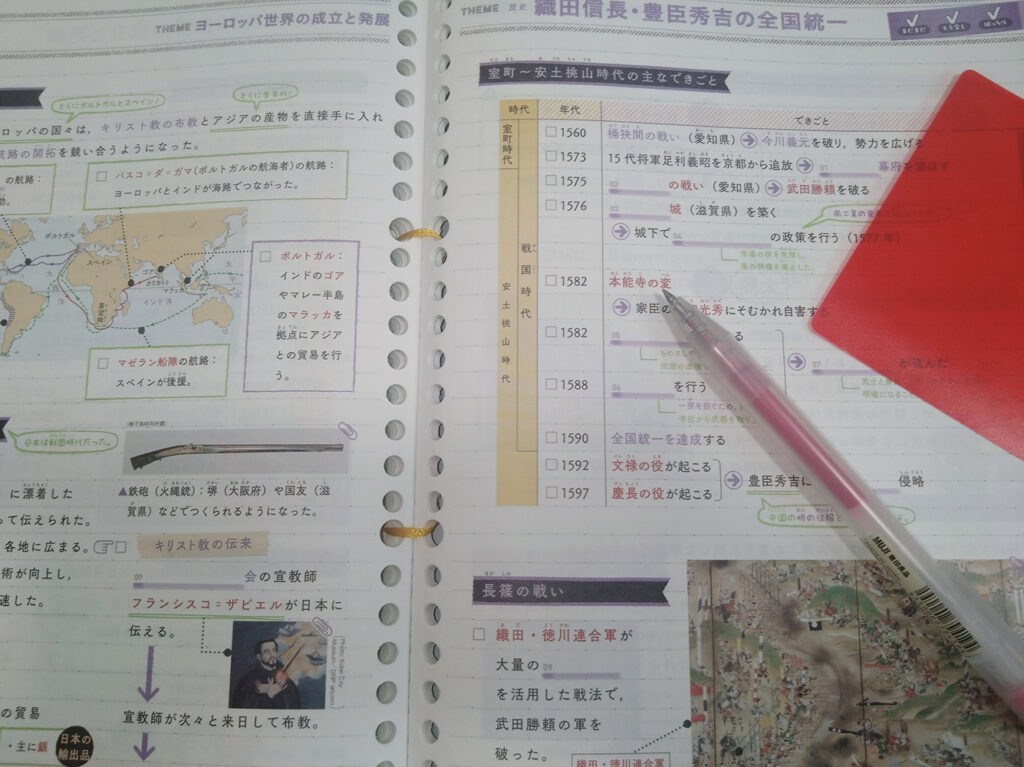 THEME ヨーロッパ世界の成立と発展
とくにポルトガルとスペイン!
とくに香辛料!
ロッパの国々は，キリスト教の布教とアジアの産物を直接手に入れ
航路の開拓を競い合うようになった。
の航路:
バスコ=ダ=ガマ(ポルトガルの航海者)の航路:
ヨーロッパとインドが海路でつながった。
ポルトガル
スペイン
ゴア
カリカット
マラッカ
インド洋
太平洋
喜望峰
ポルトガル:
インドのゴア
やマレー半島
のマラッカを
拠点にアジア
との貿易を行
う。
マゼラン船隊の航路:
スペインが後援。
日本は戦国時代だった。
に漂着した
って伝えられた。
各地に広まる。
術が向上し，
速した。
▲鉄砲(火縄銃):堺(大阪府)や国友(滋
賀県)などでつくられるようになった。
キリスト教の伝来
09 会の宣教師
フランシスコ=ザビエルが日本に
伝える。
Photo: Kobe City
Museum / DNPartcom
宣教師が次々と来日して布教。
の貿易
・主に銀
日本の
輸出品
THEME 歴史 織田信長・豊臣秀吉の全国統一
まだまだ
もう少し
ばっちり
室町～安土桃山時代の主なできごと
時代 年代 できごと
室町時代
戦国時代
安土桃山時代
1560 桶狭間の戦い(愛知県)→今川義元を破り，勢力を広げる
1573 15代将軍足利義昭を京都から追放→01 幕府を滅ぼす
1575 02 の戦い(愛知県)→武田勝頼を破る
1576 03 城(滋賀県)を築く
→城下で04 の政策を行う(1577年)
市場の税を免除し，
座の特権を廃止した。
1582 本能寺の変
→家臣の 光秀にそむかれ自害する
1582 05 る
1588 06 を行う
一揆を防ぐため，
寺社から武器を取り
→07 が進んだ
武士と
明確になる
1590 全国統一を達成する
1592 文禄の役が起こる
1597 慶長の役が起こる
→豊臣秀吉に 侵略
中国の明の征服
長篠の戦い
織田・徳川連合軍が
大量の09
を活用した戦法で，
武田勝頼の軍を
破った。
織田・徳川連合軍
MUJI 無印良品